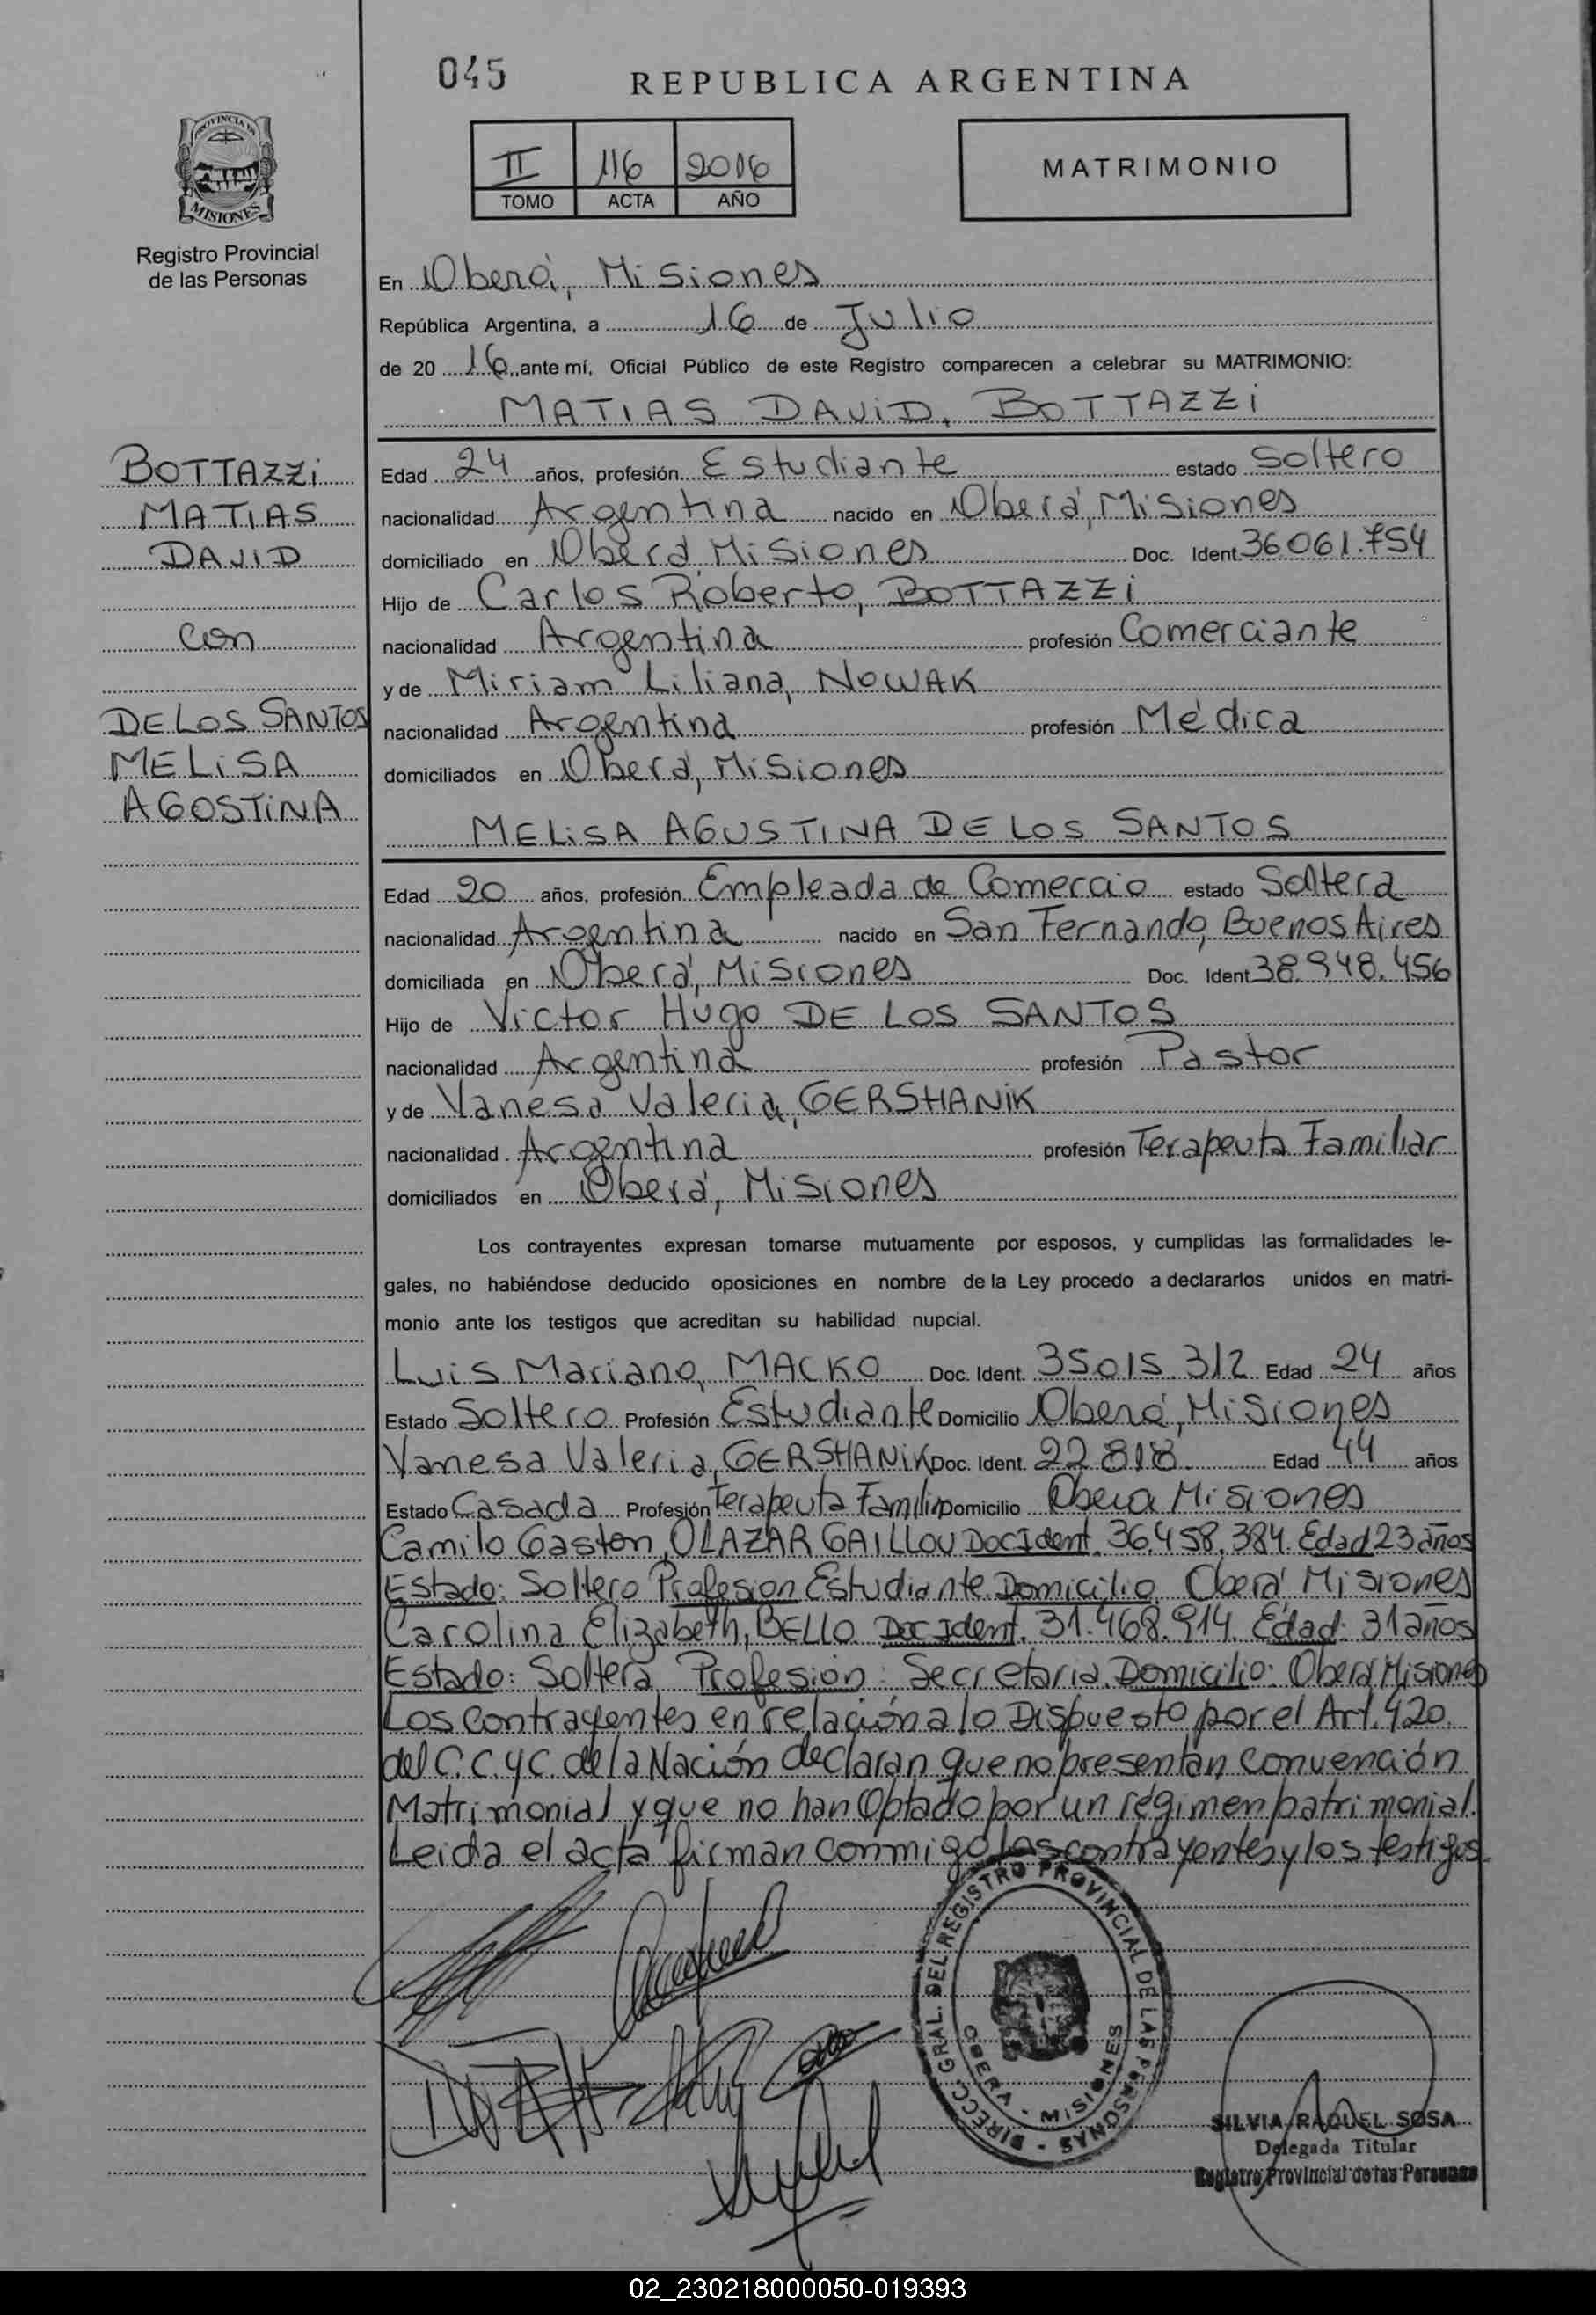 045
REPUBLICA ARGENTINA
PROVINCIA DE
MISIONES
Registro Provincial
de las Personas
II 116 2016
TOMO ACTA AÑO
MATRIMONIO
En Oberá, Misiones
República Argentina, a 16 de Julio
de 20 16, ante mí, Oficial Público de este Registro comparecen a celebrar su MATRIMONIO:
MATIAS DAVID, BOTTAZZi
BOTTAZZi
MATIAS
DAVID
con
DE LOS SANTOS
MELiSA
AGOSTiNA
Edad 24 años, profesión Estudiante estado Soltero
nacionalidad Argentina nacido en Oberá, Misiones
domiciliado en Oberá, Misiones Doc. Ident. 36.061.754
Hijo de Carlos Roberto, BOTTAZZi
nacionalidad Argentina profesión Comerciante
y de Miriam Liliana, NOWAK
nacionalidad Argentina profesión Médica
domiciliados en Oberá, Misiones
MELiSA AGUSTINA DE LOS SANTOS
Edad 20 años, profesión Empleada de Comercio estado Soltera
nacionalidad Argentina nacido en San Fernando, Buenos Aires
domiciliada en Oberá, Misiones Doc. Ident. 38.948.456
Hijo de Victor Hugo DE LOS SANTOS
nacionalidad Argentina profesión Pastor
y de Vanesa Valeria, GERSHANiK
nacionalidad Argentina profesión Terapeuta Familiar
domiciliados en Oberá, Misiones
Los contrayentes expresan tomarse mutuamente por esposos, y cumplidas las formalidades le-
gales, no habiéndose deducido oposiciones en nombre de la Ley procedo a declararlos unidos en matri-
monio ante los testigos que acreditan su habilidad nupcial.
Luis Mariano, MACKO Doc. Ident. 35015.312 Edad 24 años
Estado Soltero Profesión Estudiante Domicilio Oberá, Misiones
Vanesa Valeria, GERSHANiK Doc. Ident. 22.818. Edad 44 años
Estado Casada Profesión Terapeuta Familiar Domicilio Oberá Misiones
Camilo Gaston, OLAZAR GAILLOU Doc Ident. 36.458.384. Edad 23 años
Estado: Soltero Profesion Estudiante Domicilio Oberá Misiones
Carolina Elizabeth, BELLO Doc Ident. 31.468.914. Edad: 31 años
Estado: Soltera Profesión: Secretaria. Domicilio: Oberá Misiones
Los Contrayentes en relación a lo Dispuesto por el Art. 420.
del C.C.yC. de la Nación declaran que no presentan Convención
Matrimonial y que no han Optado por un régimen patrimonial.
Leida el acta firman conmigo los contrayentes y los testigos.
DIRECC. GRAL. DEL REGISTRO PROVINCIAL DE LAS PERSONAS -
OBERA - MISIONES
SILVIA RAQUEL SOSA
Delegada Titular
Registro Provincial de las Personas
02_230218000050-019393